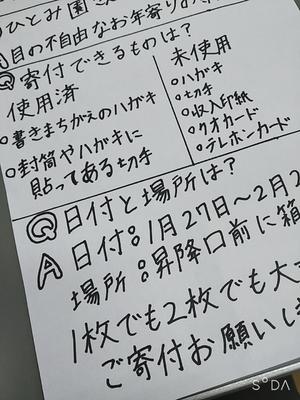 ひとみ園
A 目の不自由なお年寄り
Q 寄付できるものは？
使用済
○書きまちがえのハガキ
○封筒やハガキに
貼ってある切手
未使用
○ハガキ
○切手
○収入印紙
○クオカード
○テレホンカード
Q 日付と場所は？
A 日付：1月27日〜2月2
場所：昇降口前に箱
1枚でも2枚でも大
ご寄付お願いし
SODA